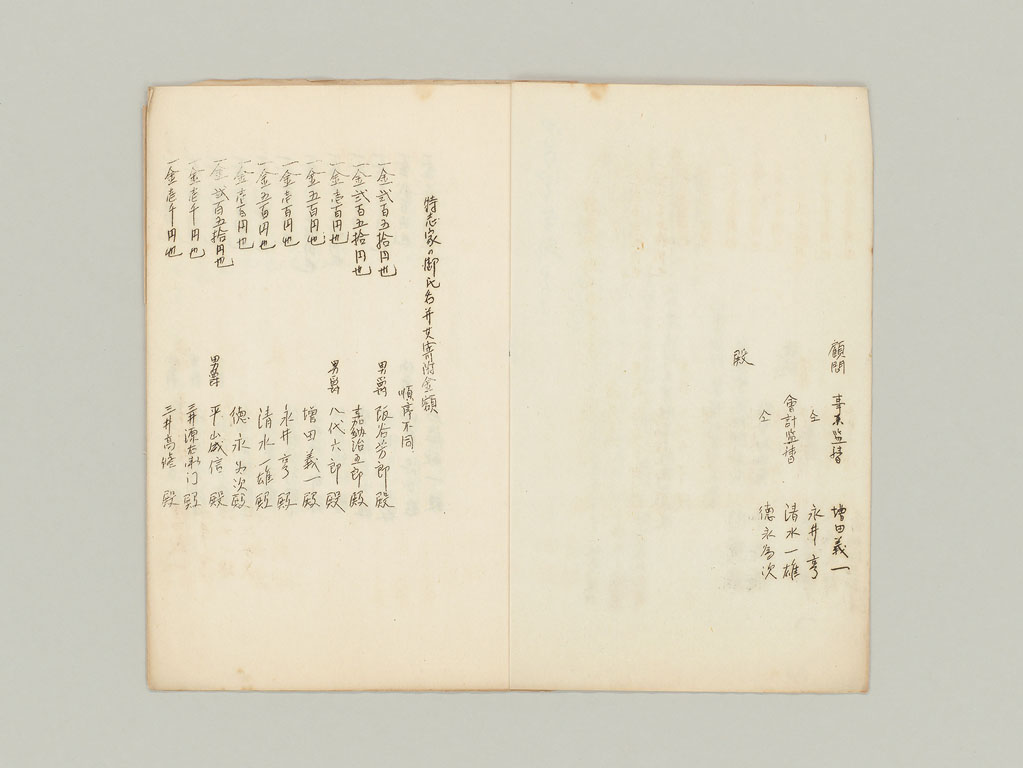 顧問 事業監督 増田義一
仝 永井亨
會計監督 清水一雄
仝 徳永為次
殿
特志家ノ御氏名并其寄附金額
順序不同
一金弐百五拾円也 男爵 阪谷芳郎 殿
一金弐百五拾円也 嘉納治五郎 殿
一金壱百円也 男爵 八代六郎 殿
一金五百円也 増田義一 殿
一金壱百円也 永井亨 殿
一金五百円也 清水一雄 殿
一金壱百円也 徳永為次 殿
一金弐百五拾円也 男爵 平山成信 殿
一金壱千円也 三井源右衛门 殿
一金壱千円也 三井高脩 殿